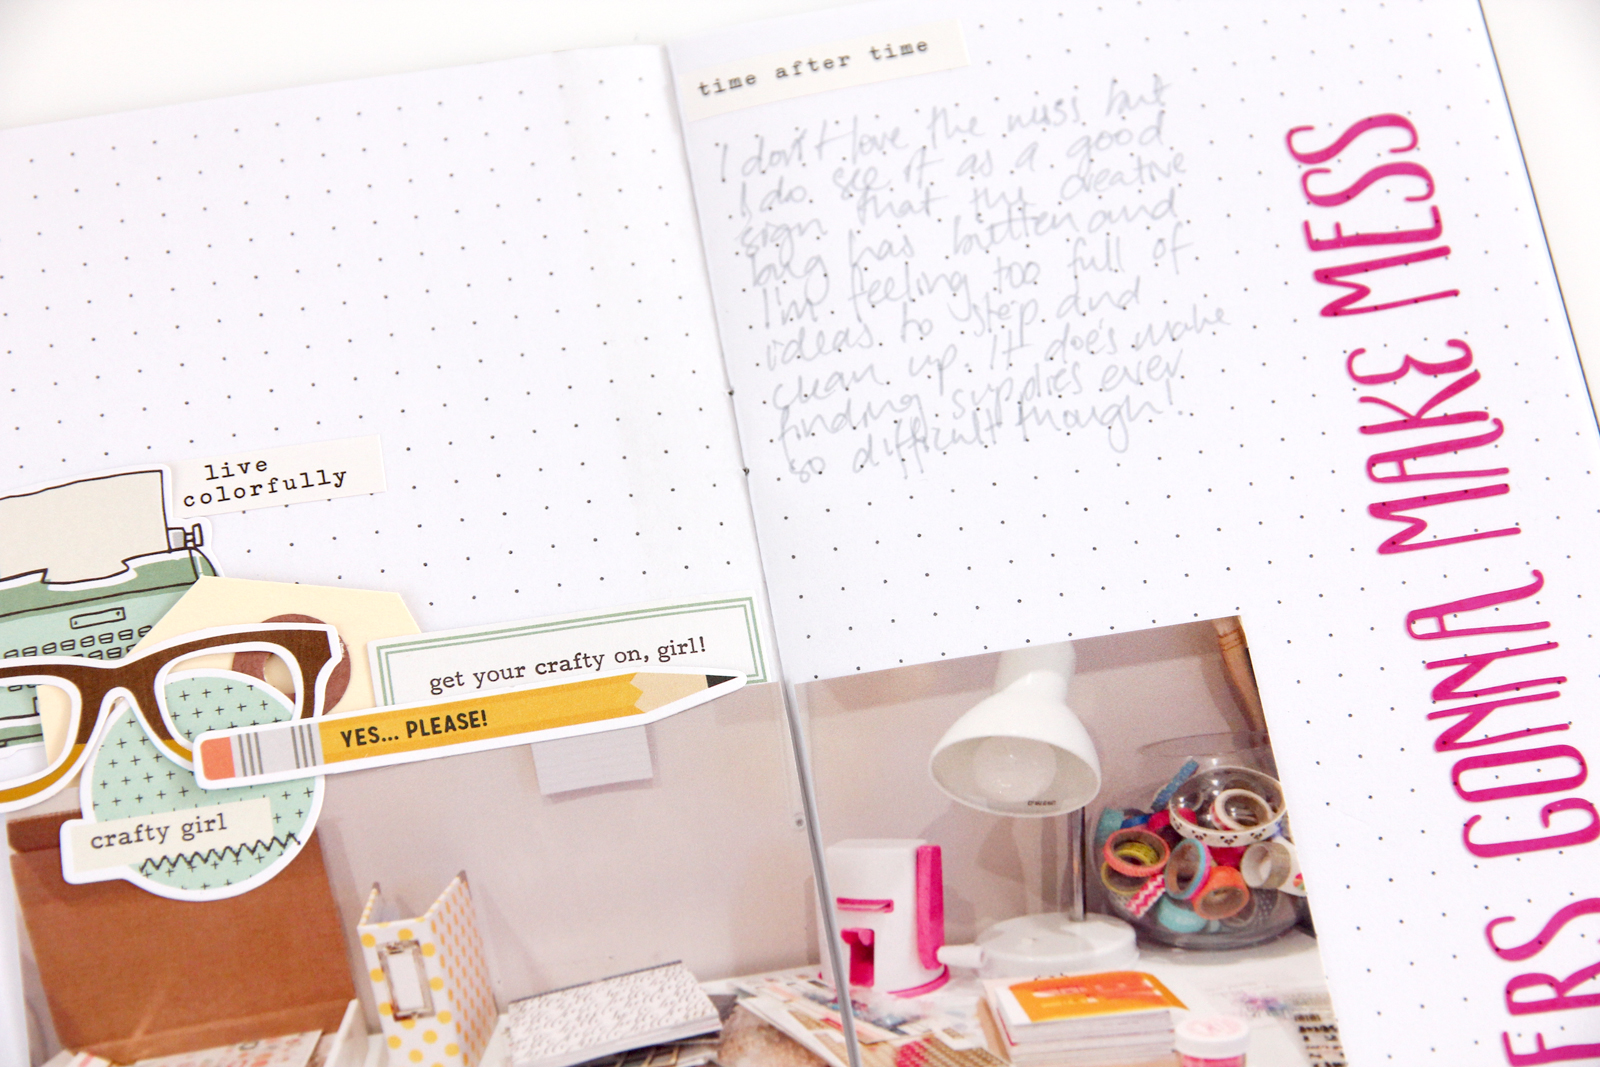 time after time
I don't love the mess but
I do see it as a good
sign that the creative
bug has bitten and
I'm feeling too full of
ideas to stop and
clean up. It does make
finding supplies ever
so difficult though!
live
colorfully
get your crafty on, girl!
YES... PLEASE!
crafty girl
ERS GONNA MAKE MESS